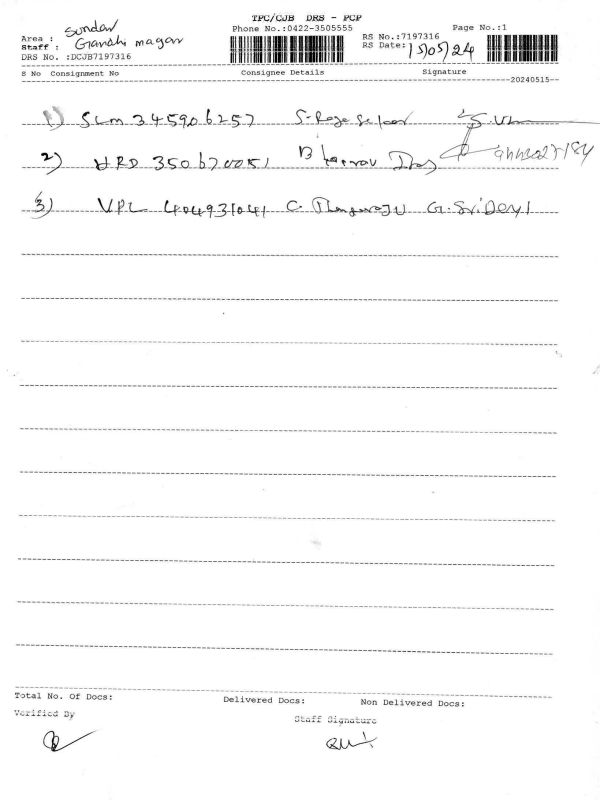 TPC/CJB DRS - PCP
Phone No.:0422-3505555
Page No.:1
Area : Sundar
Staff : Gandhi magar
RS No.:7197316
RS Date: 15/05/24
DRS No. :DCJB7197316
S No Consignment No Consignee Details Signature
20240515
1) SLM 345906257 S. Raja Sekar
2) HRD 350670051
3) VPL 404931041 C. Thangaraju G. Sri Devi
Total No. Of Docs: Delivered Docs: Non Delivered Docs:
Verified By Staff Signature